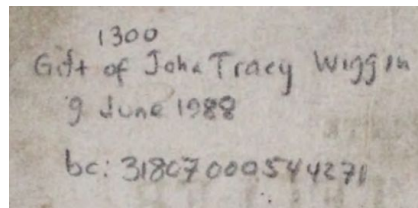 1300
Gift of John Tracy Wiggin
9 June 1988
bc: 31807000544271